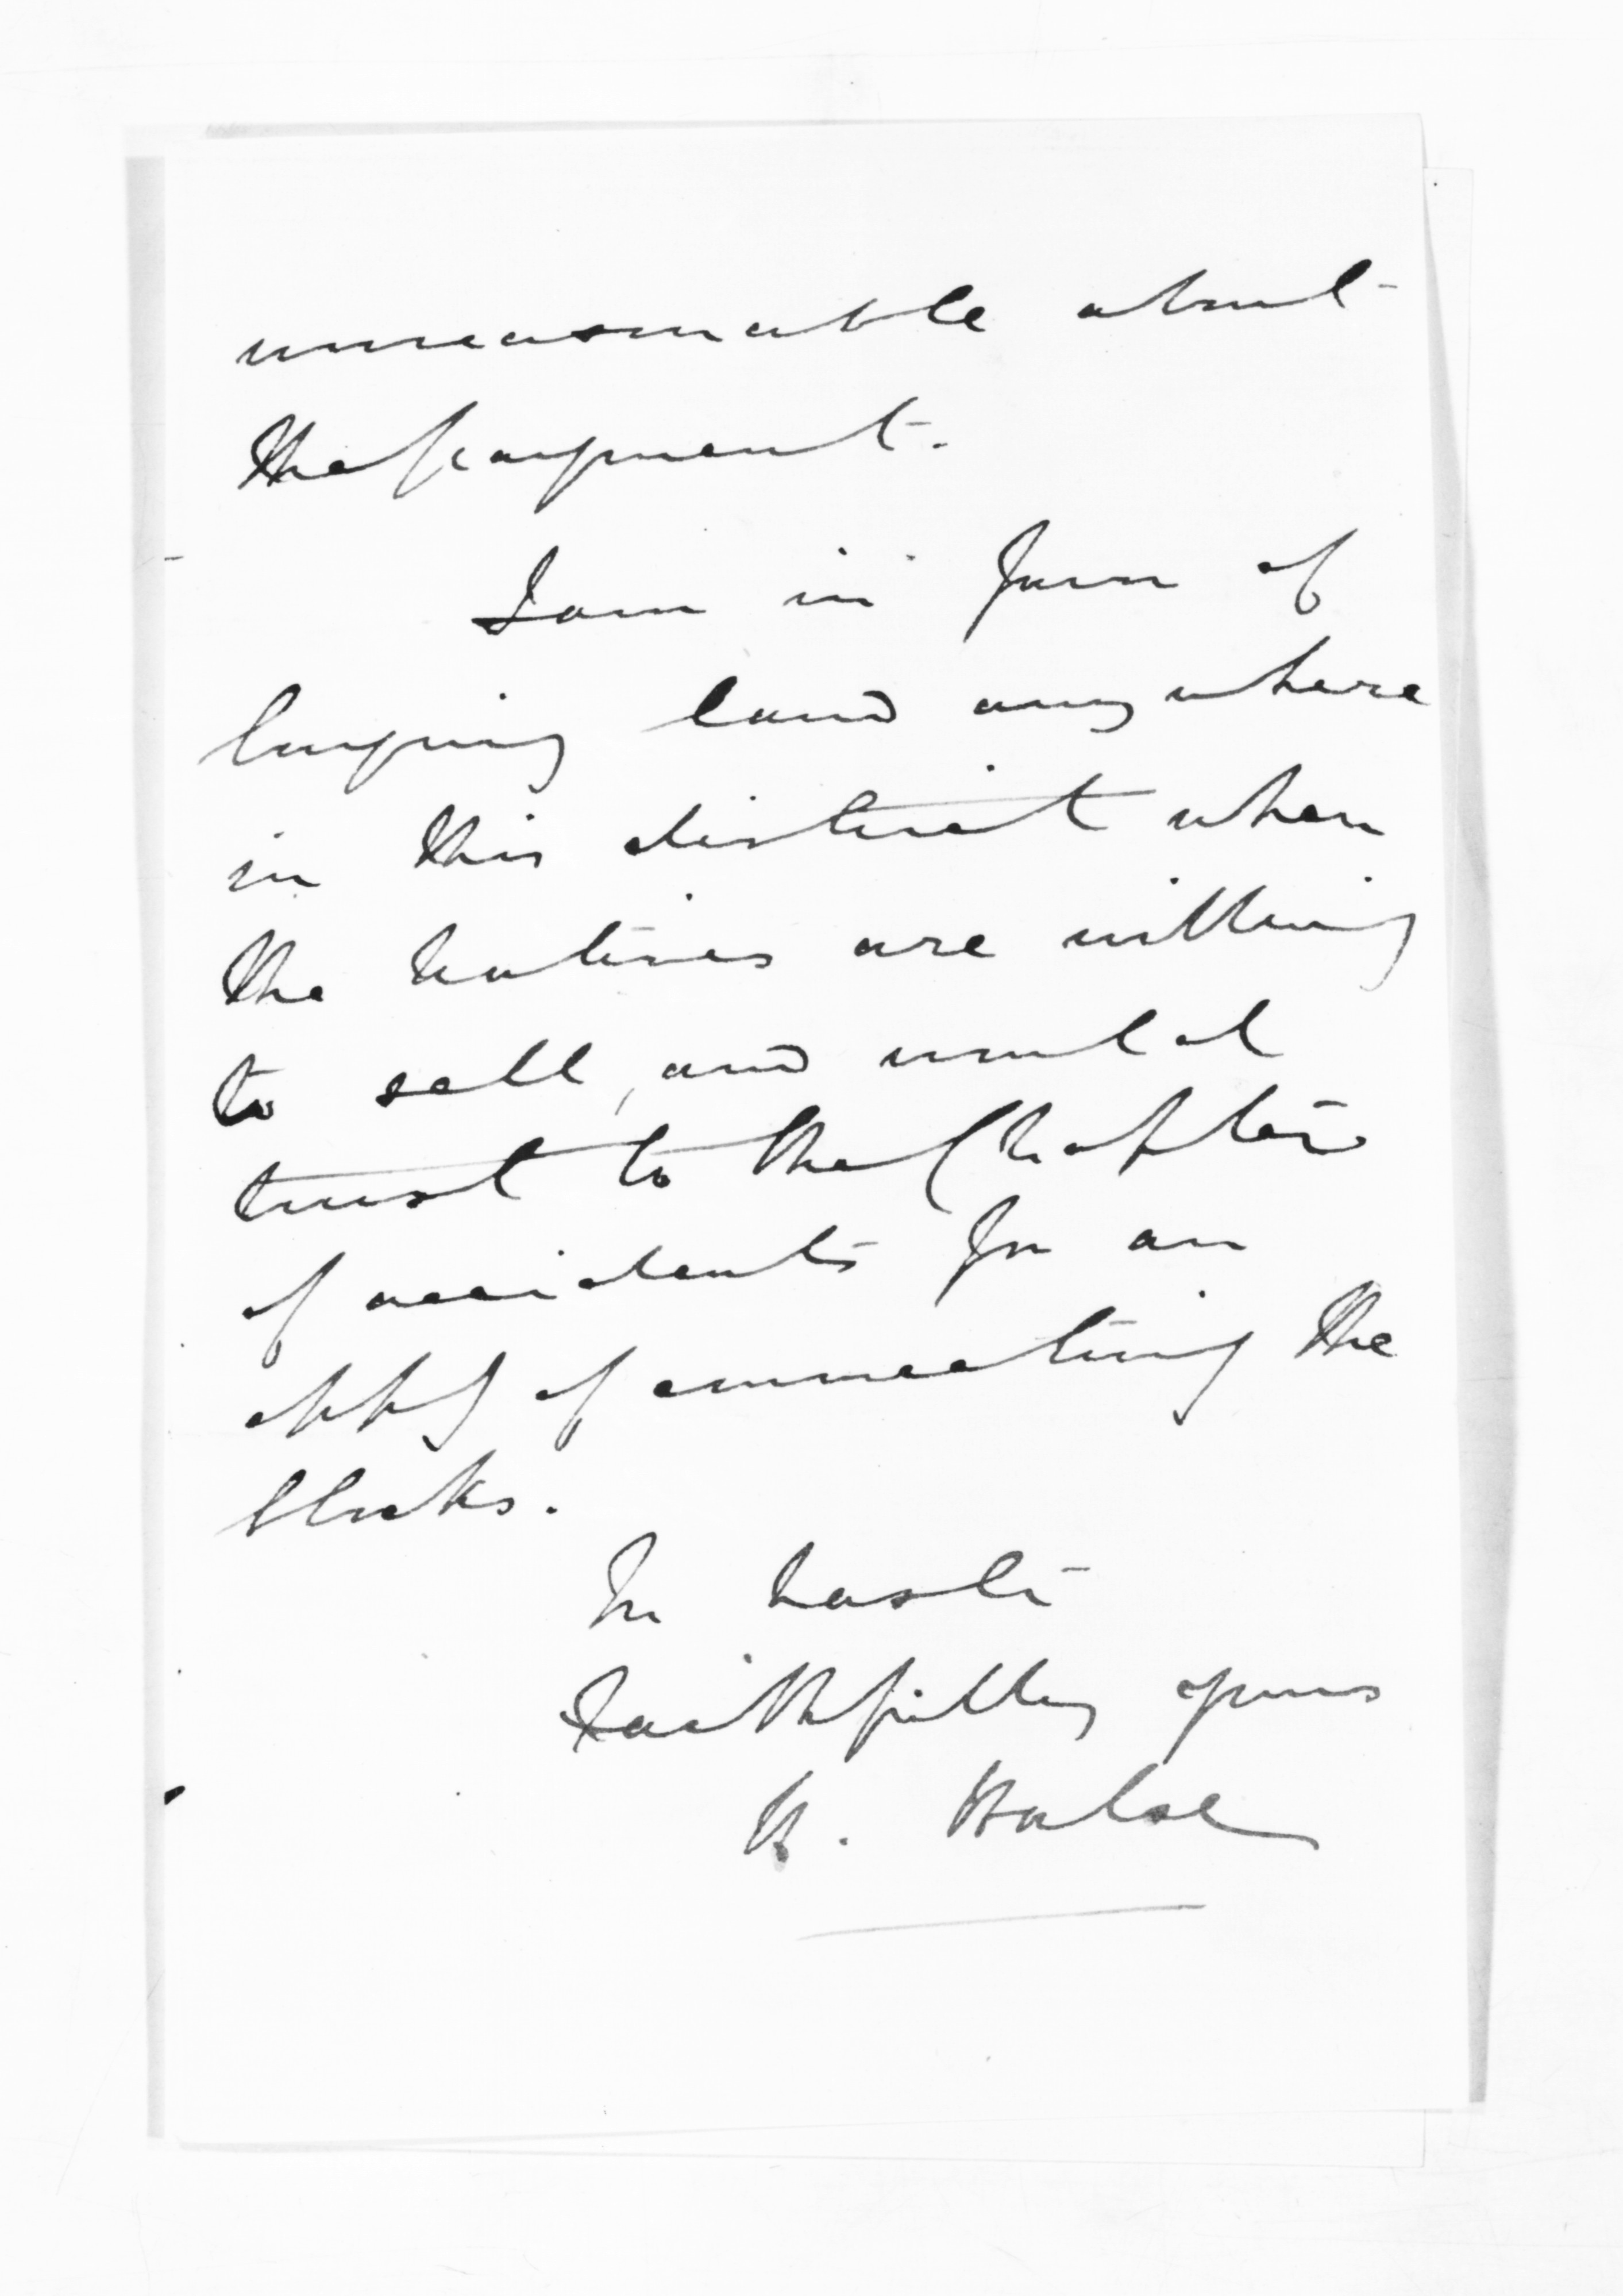 unreasonable about
the payment.
I am in favor of
buying land anywhere
in this district when
the Natives are willing
to sell, and would
trust to the Chapter
of accidents for an
oppy of connecting the
blocks.
In haste
Faithfully yours
H. Halse